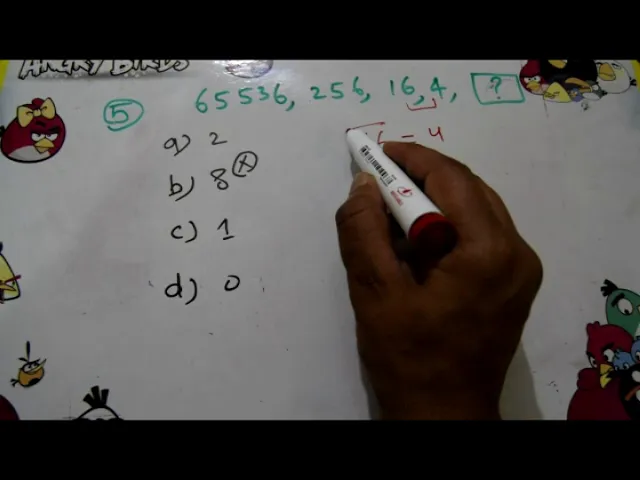 ANGRY BIRDS
5 65536, 256, 16, 4, ?
6 = 4
a) 2
b) 8 x
c) 1
d) 0